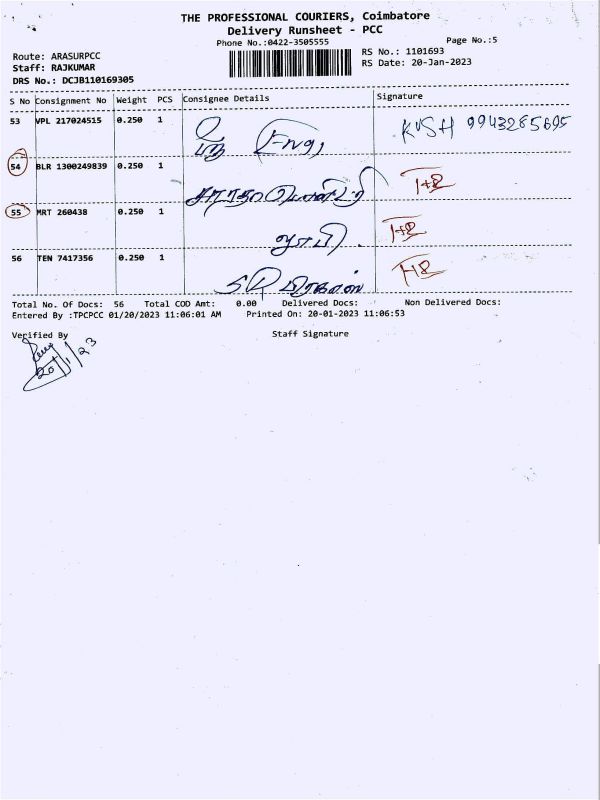 THE PROFESSIONAL COURIERS, Coimbatore
Delivery Runsheet - PCC
Phone No.:0422-3505555
Page No.:5
Route: ARASURPCC
Staff: RAJKUMAR
DRS No.: DCJB110169305
RS No.: 1101693
RS Date: 20-Jan-2023
S No Consignment No Weight PCS Consignee Details Signature
53 VPL 217024515 0.250 1 KVSH 9943285695
54 BLR 1300249839 0.250 1
55 MRT 260438 0.250 1
56 TEN 7417356 0.250 1
Total No. Of Docs: 56 Total COD Amt: 0.00 Delivered Docs: Non Delivered Docs:
Entered By :TPCPCC 01/20/2023 11:06:01 AM Printed On: 20-01-2023 11:06:53
Verified By Staff Signature
20/1/23